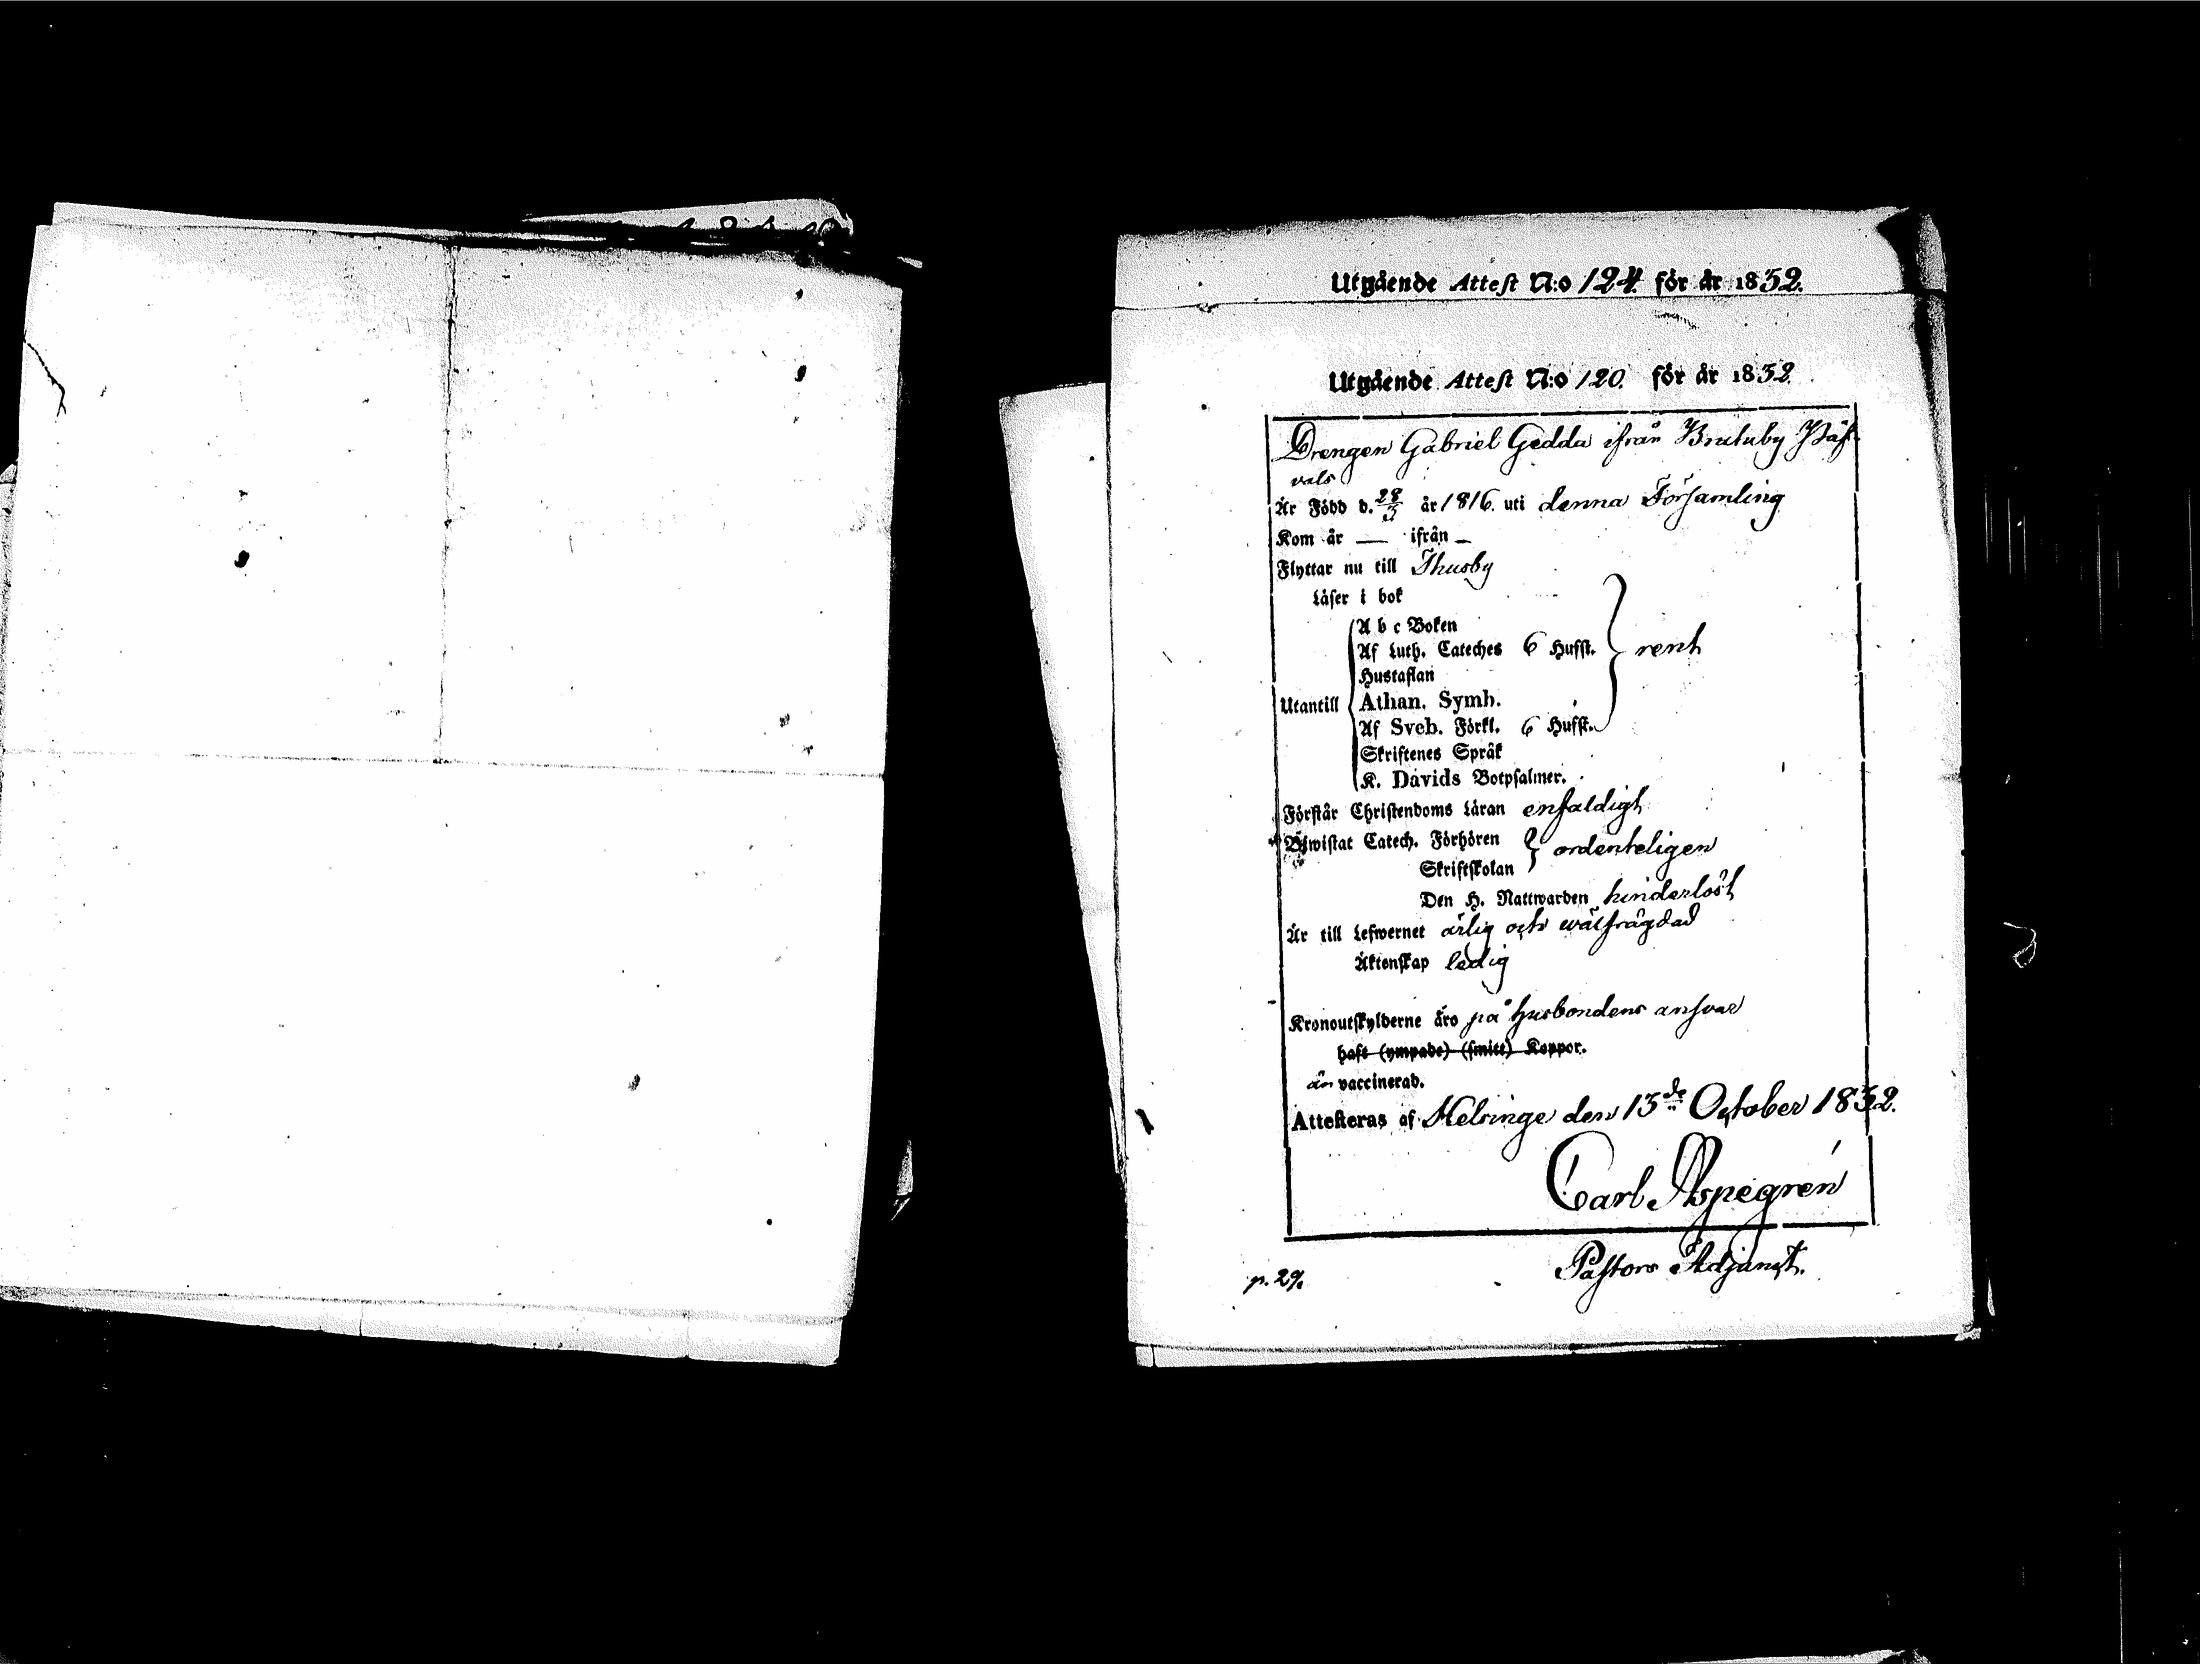 Utgående Attest N:o 124. för år 1832.
Utgående Attest N:o 120. för år 1832.
Drengen Gabriel Gedda ifrån Brutuby Päf-
vals
Är Född d. 28/3 år 1816. uti denna Församling
Kom år — ifrån —
Flyttar nu till Thusby
Läser i bok
A b c Boken
Af Luth. Cateches 6 Hufst. } rent
Hustaflan
Utantill Athan. Symb.
Af Sveb. Förkl. 6 Hufst.
Skriftenes Språk
K. Davids Botpsalmer.
Förstår Christendoms Läran enfaldigt
Biwistat Catech. Förhören } ordenteligen
Skriftskolan
Den H. Nattwarden hinderlöst
Är till Lefwernet ärlig och wälfrägdad
Äktenskap ledig
Kronoutskylderne äro på Husbondens ansvar
haft (ympade) (smitt) Koppor.
är vaccinerad.
Attesteras af Helsinge den 13de October 1832.
Carl Aspegrén
Pastors Adjunct.
p. 29.